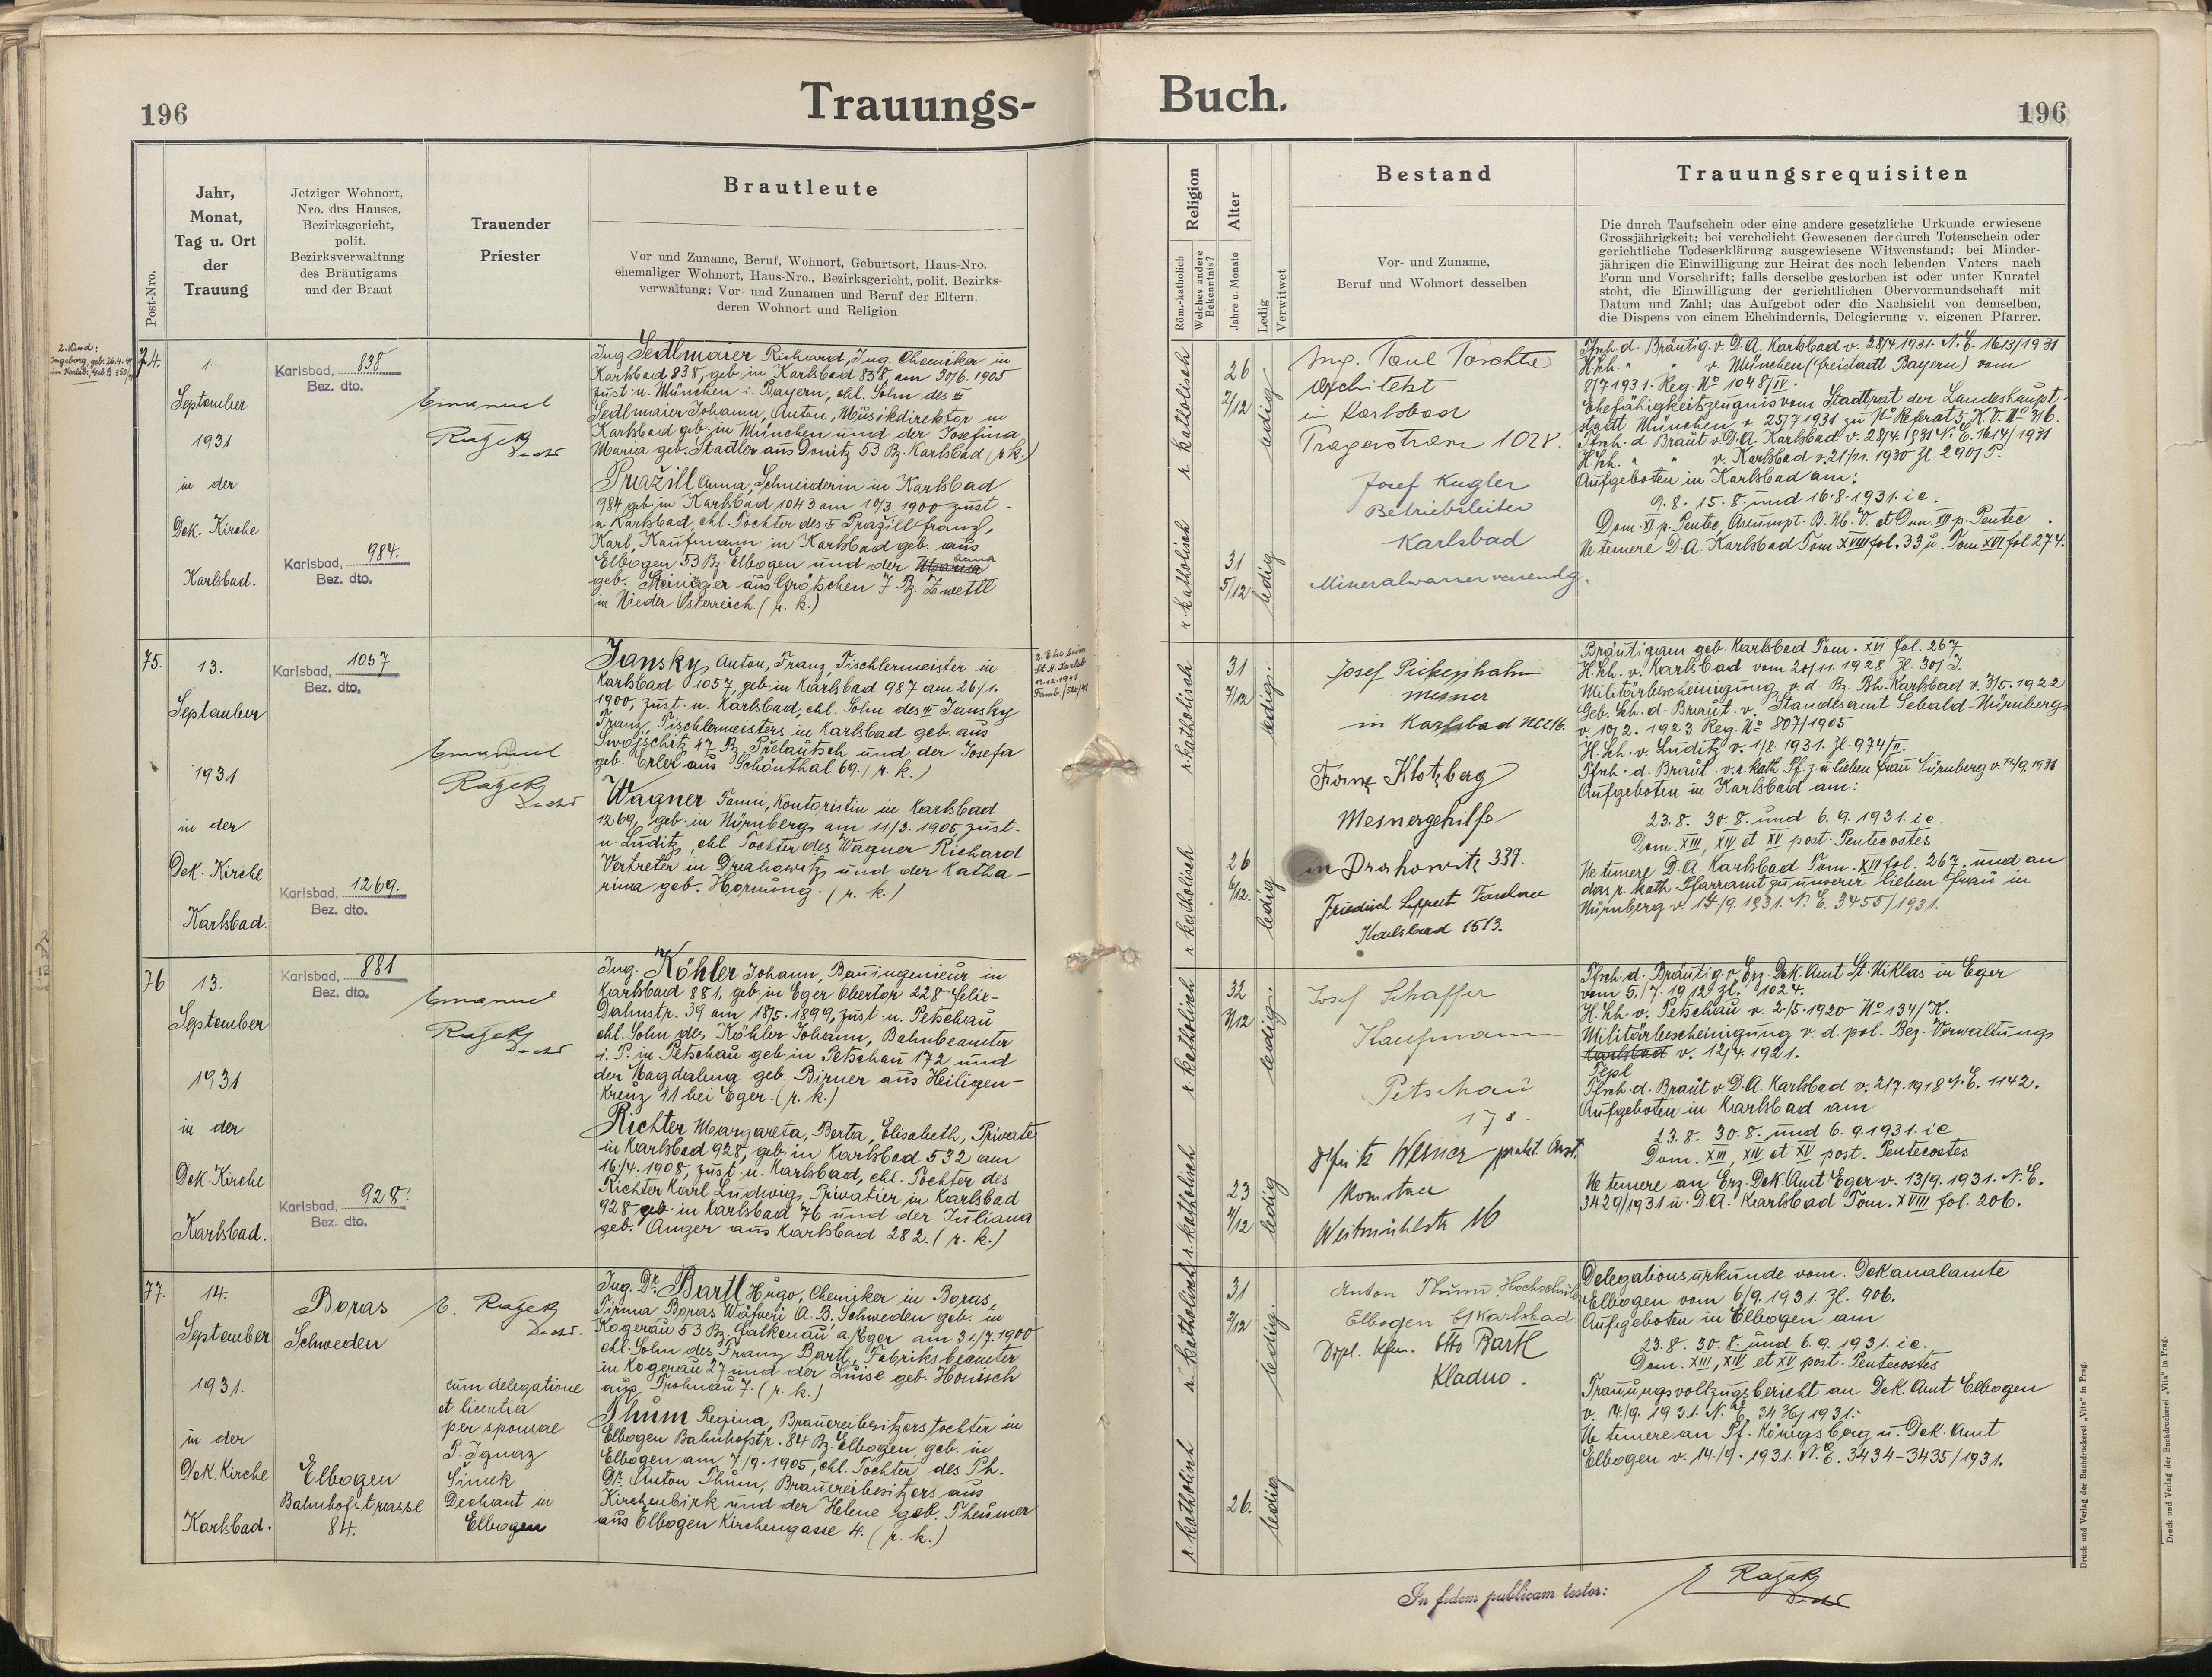 196
Trauungs-
Buch.
196
Post-Nro.
Jahr,
Monat,
Tag u. Ort
der
Trauung
Jetziger Wohnort,
Nro. des Hauses,
Bezirksgericht,
polit.
Bezirksverwaltung
des Bräutigams
und der Braut
Trauender
Priester
Brautleute
Vor und Zuname, Beruf, Wohnort, Geburtsort, Haus-Nro.
ehemaliger Wohnort, Haus-Nro., Bezirksgericht, polit. Bezirks-
verwaltung; Vor- und Zunamen und Beruf der Eltern,
deren Wohnort und Religion
Religion
Röm.-katholisch
Welches andere
Bekenntnis?
Alter
Jahre u. Monate
Ledig
Verwitwet
Bestand
Vor- und Zuname,
Beruf und Wohnort desselben
Trauungsrequisiten
Die durch Taufschein oder eine andere gesetzliche Urkunde erwiesene
Grossjährigkeit; bei verehelicht Gewesenen der durch Totenschein oder
gerichtliche Todeserklärung ausgewiesene Witwenstand; bei Minder-
jährigen die Einwilligung zur Heirat des noch lebenden Vaters nach
Form und Vorschrift; falls derselbe gestorben ist oder unter Kuratel
steht, die Einwilligung der gerichtlichen Obervormundschaft mit
Datum und Zahl; das Aufgebot oder die Nachsicht von demselben,
die Dispens von einem Ehehindernis, Delegierung v. eigenen Pfarrer.
2. Kind:
Ingeborg, geb. 26.4.
74.
1.
September
1931
in der
Dek. Kirche
Karlsbad.
Karlsbad, 838
Bez. dto.
Karlsbad, 984.
Bez. dto.
Emanuel
Ražek
Dech
Ing Sedlmaier Richard, Ing. Chemiker in
Karlsbad 838, geb. in Karlsbad 838 am 30/6. 1905
zust n. München i. Bayern, ehl. Sohn des
Sedlmaier Johann, Anton, Musikdirektor in
Karlsbad geb. in München und der Josefina
Maria geb. Stadler aus Donitz 53 Bz. Karlsbad (r. k.)
Pražill Anna, Schneiderin in Karlsbad
984 geb. in Karlsbad 1043 am 10/3. 1900 zust.
n. Karlsbad, ehl. Tochter des Pražill Franz,
Karl, Kaufmann in Karlsbad geb. aus
Elbogen 53 Bz. Elbogen und der Maria Anna
geb. Steiniger aus Grötschen 7 Bz. Zwettl
in Nieder Österreich. (r. k.)
r. katholisch
26
2/12
ledig
r. katholisch
31
5/12
ledig
Ing. Paul
Architekt
in Karlsbad
Pragerstrasse 1028.
Josef Kugler
Betriebsleiter
Karlsbad
Mineralwasserversendg.
Tfsch. d. Bräutig. v. D. A. Karlsbad v. 28/4 1931. N. E. 1613/1931
H. sch. " " v. München (Freistadt Bayern) vom
1931. Reg. No 1048/IV.
Ehefähigkeitszeugnis vom Stadtrat der Landeshaupt-
stadt München v. 25/7 1931 zu No Referat 5, K. V. No 316.
Tfsch. d. Braut v. D. A. Karlsbad v. 28/4. 1931 N. E. 1614/1931
H. sch. " " v. Karlsbad v. 21/11. 1930 Zl. 290/P.
Aufgeboten in Karlsbad am:
9. 8. 15. 8. und 16. 8. 1931. i. e.
Dom. XI p. Pentec. Assumpt. B. M. V. et Dom. XII p. Pentec.
Ne temere D. A. Karlsbad Tom XVIII fol. 33 u. Tom XVI fol 274.
75.
13.
September
1931
in der
Dek. Kirche
Karlsbad.
Karlsbad, 1057
Bez. dto.
Karlsbad, 1269.
Bez. dto.
Emanuel
Ražek
Dech
Jansky Anton, Franz Tischlermeister in
Karlsbad 1057, geb. in Karlsbad 987 am 26/1.
1900, zust. n. Karlsbad, ehl. Sohn des Jansky
Franz, Tischlermeisters in Karlsbad geb. aus
Swojschitz 47 Bz. Přelautsch und der Josefa
geb. Erler aus Schönthal 69. (r. k.)
Wagner Fanni, Kontoristin in Karlsbad
1269, geb. in Nürnberg am 11/3. 1905, zust.
n. Luditz, ehl. Tochter des Wagner Richard
Vertreter in Drahowitz und der Katha-
rina geb. Hornung. (r. k.)
2. Ehe beim
St. A. Karlsb
12.12.1941
r. katholisch
31
7/12
ledig.
r. katholisch
26
6/12.
ledig
Josef Pickenhahn
Mesner
in Karlsbad
Franz Klotzberg
Mesnergehilfe
in Drahowitz 339.
Friedrich Lippert
Karlsbad 1513.
Bräutigam geb. Karlsbad Tom. XVI fol. 267
H. sch. v. Karlsbad vom 20/11. 1928 Zl. 30/J.
Militärbescheinigung v. d. Bz. Bh. Karlsbad v. 3/5. 1922
Geb. Sch. d. Braut. v. Standesamt Sebald-Nürnberg
v. 10/2. 1923 Reg. No 807/1905
H. Sch. v. Luditz v. 1/8. 1931. Zl. 974/II.
Tfsch. d. Braut. v. r. kath. Pf. z. u lieben Frau Nürnberg v. 14/9. 1931
Aufgeboten in Karlsbad am:
23. 8. 30. 8. und 6. 9. 1931. i. e.
Dom. XIII, XIV et XV post. Pentecostes
Ne temere D. A. Karlsbad Tom. XVI fol. 267. und an
das r. kath. Pfarramt zu unserer lieben Frau in
Nürnberg v. 14/9. 1931. N. E. 3455/1931.
76
13.
September
1931
in der
Dek. Kirche
Karlsbad.
Karlsbad, 881
Bez. dto.
Karlsbad, 928.
Bez. dto.
Emanuel
Ražek
Dech
Ing. Köhler Johann, Bauingenieur in
Karlsbad 881, geb. in Eger Obertor 228 Felix-
Dahnstr. 39 am 18/5. 1899, zust. n. Petschau
ehl. Sohn des Köhler Johann, Bahnbeamter
i. P. in Petschau geb. in Petschau 172 und
der Magdalena geb. Birner aus Heiligen-
Kreuz 11 bei Eger. (r. k.)
Richter Margareta, Berta, Elisabeth, Private
in Karlsbad 928, geb. in Karlsbad 532 am
16./4. 1908, zust. n. Karlsbad, ehl. Tochter des
Richter Karl Ludwig, Privatier in Karlsbad
928 geb. in Karlsbad 76 und der Juliana
geb. Anger aus Karlsbad 282. (r. k.)
r. katholisch
32
3/12
ledig.
r. katholisch
23
4/12
ledig
Josef Schaffer
Kaufmann
Petschau
178.
Werner prakt. Arzt.
Komotau
Weitmühlstr 16
Tfsch. d. Bräutig. v. Erz. Dek. Amt St. Niklas in Eger
vom 5./7. 1912 Zl. 1024.
H. Sch. v. Petschau v. 2/5. 1920 No 134/K.
Militärbescheinigung v. d. pol. Bez. Verwaltung
Karlsbad v. 12/4. 1921.
Tepl
Tfsch. d. Braut v. D. A. Karlsbad v. 2/7. 1918 N. E. 1142.
Aufgeboten in Karlsbad am
23. 8. 30. 8. und 6. 9. 1931. i. e
Dom. XIII, XIV et XV post. Pentecostes
Ne temere an Erz. Dek. Amt Eger v. 13/9. 1931. N. E.
3429/1931 u. D. A. Karlsbad Tom. XVIII fol. 206.
77.
14.
September
1931.
in der
Dek. Kirche
Karlsbad.
Boras
Schweden
Elbogen
Bahnhofstrasse
84.
E. Ražek
Dech.
cum delegatione
et licentia
per sponsae
P. Ignaz
Simek
Dechant in
Elbogen
Ing. Dr. Bartl Hugo, Chemiker in Boras,
Firma Boras Wäfveri A. B. Schweden geb. in
Kogerau 53 Bz. Falkenau a/Eger am 31./7. 1900
ehl. Sohn des Franz Bartl, Fabriksbeamter
in Kogerau 27 und der Luise geb. Honisch
aus Trohnau 7. (r. k.)
Thum Regina, Brauereibesitzerstochter in
Elbogen Bahnhofstr. 84 Bz. Elbogen, geb. in
Elbogen am 7./9. 1905, ehl. Tochter des Ph.
Dr. Anton Thum, Brauereibesitzers aus
Kirchenbirk und der Helene geb. Theumer
aus Elbogen Kirchengasse 4. (r. k.)
r. katholisch
31
2/12
ledig.
r. katholisch
26.
ledig
Anton Thum, Hochschüler
Elbogen b/Karlsbad
Dipl. Kfm. Otto Bartl
Kladno.
Delegationsurkunde vom. Dekanalamte
Elbogen vom 6/9. 1931. Zl. 906.
Aufgeboten in Elbogen am
23. 8. 30. 8. und 6. 9. 1931. i. e.
Dom. XIII, XIV et XV post. Pentecostes
Trauungsvollzugsbericht an Dek. Amt Elbogen
v. 14./9. 1931. N. E. 3436/1931.
Ne temere an Pf. Königsberg u. Dek. Amt
Elbogen v. 14./9. 1931. N. E. 3434-3435/1931.
In fidem publicam testor:
E Ražek
Dech
Druck und Verlag der Buchdruckerei „Vita" in Prag.
Druck und Verlag der Buchdruckerei „Vita" in Prag.